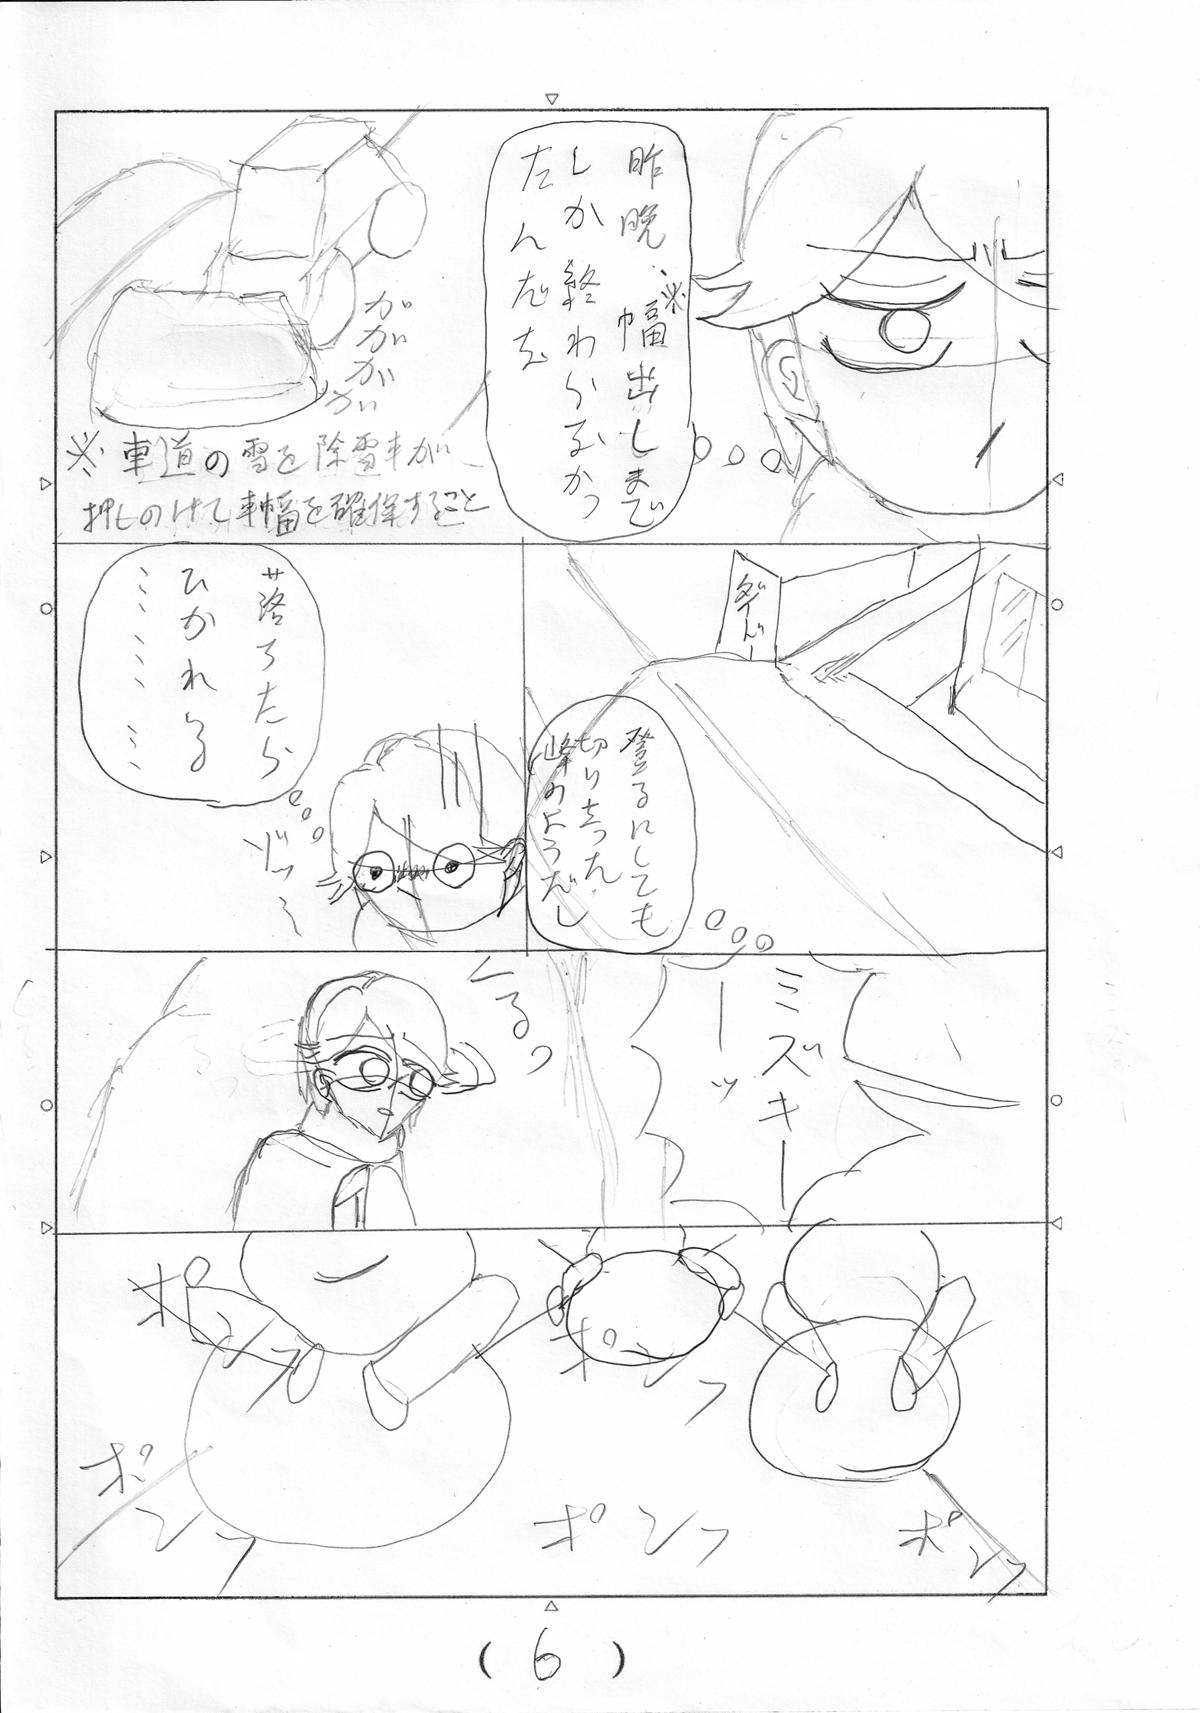 昨晩、※幅出しまで
しか終わらなかっ
たんだな
ガガガガ
※車道の雪を除雪車が
押しのけて車幅を確保すること
登るにしても
切り立った
峰のようだし
落ちたら
ひかれる
…………
ゾッ
ミズキー
ーッ
くるっ
ポンフ
ポンフ
ポンフ
ポンフ
ポンフ
(6)